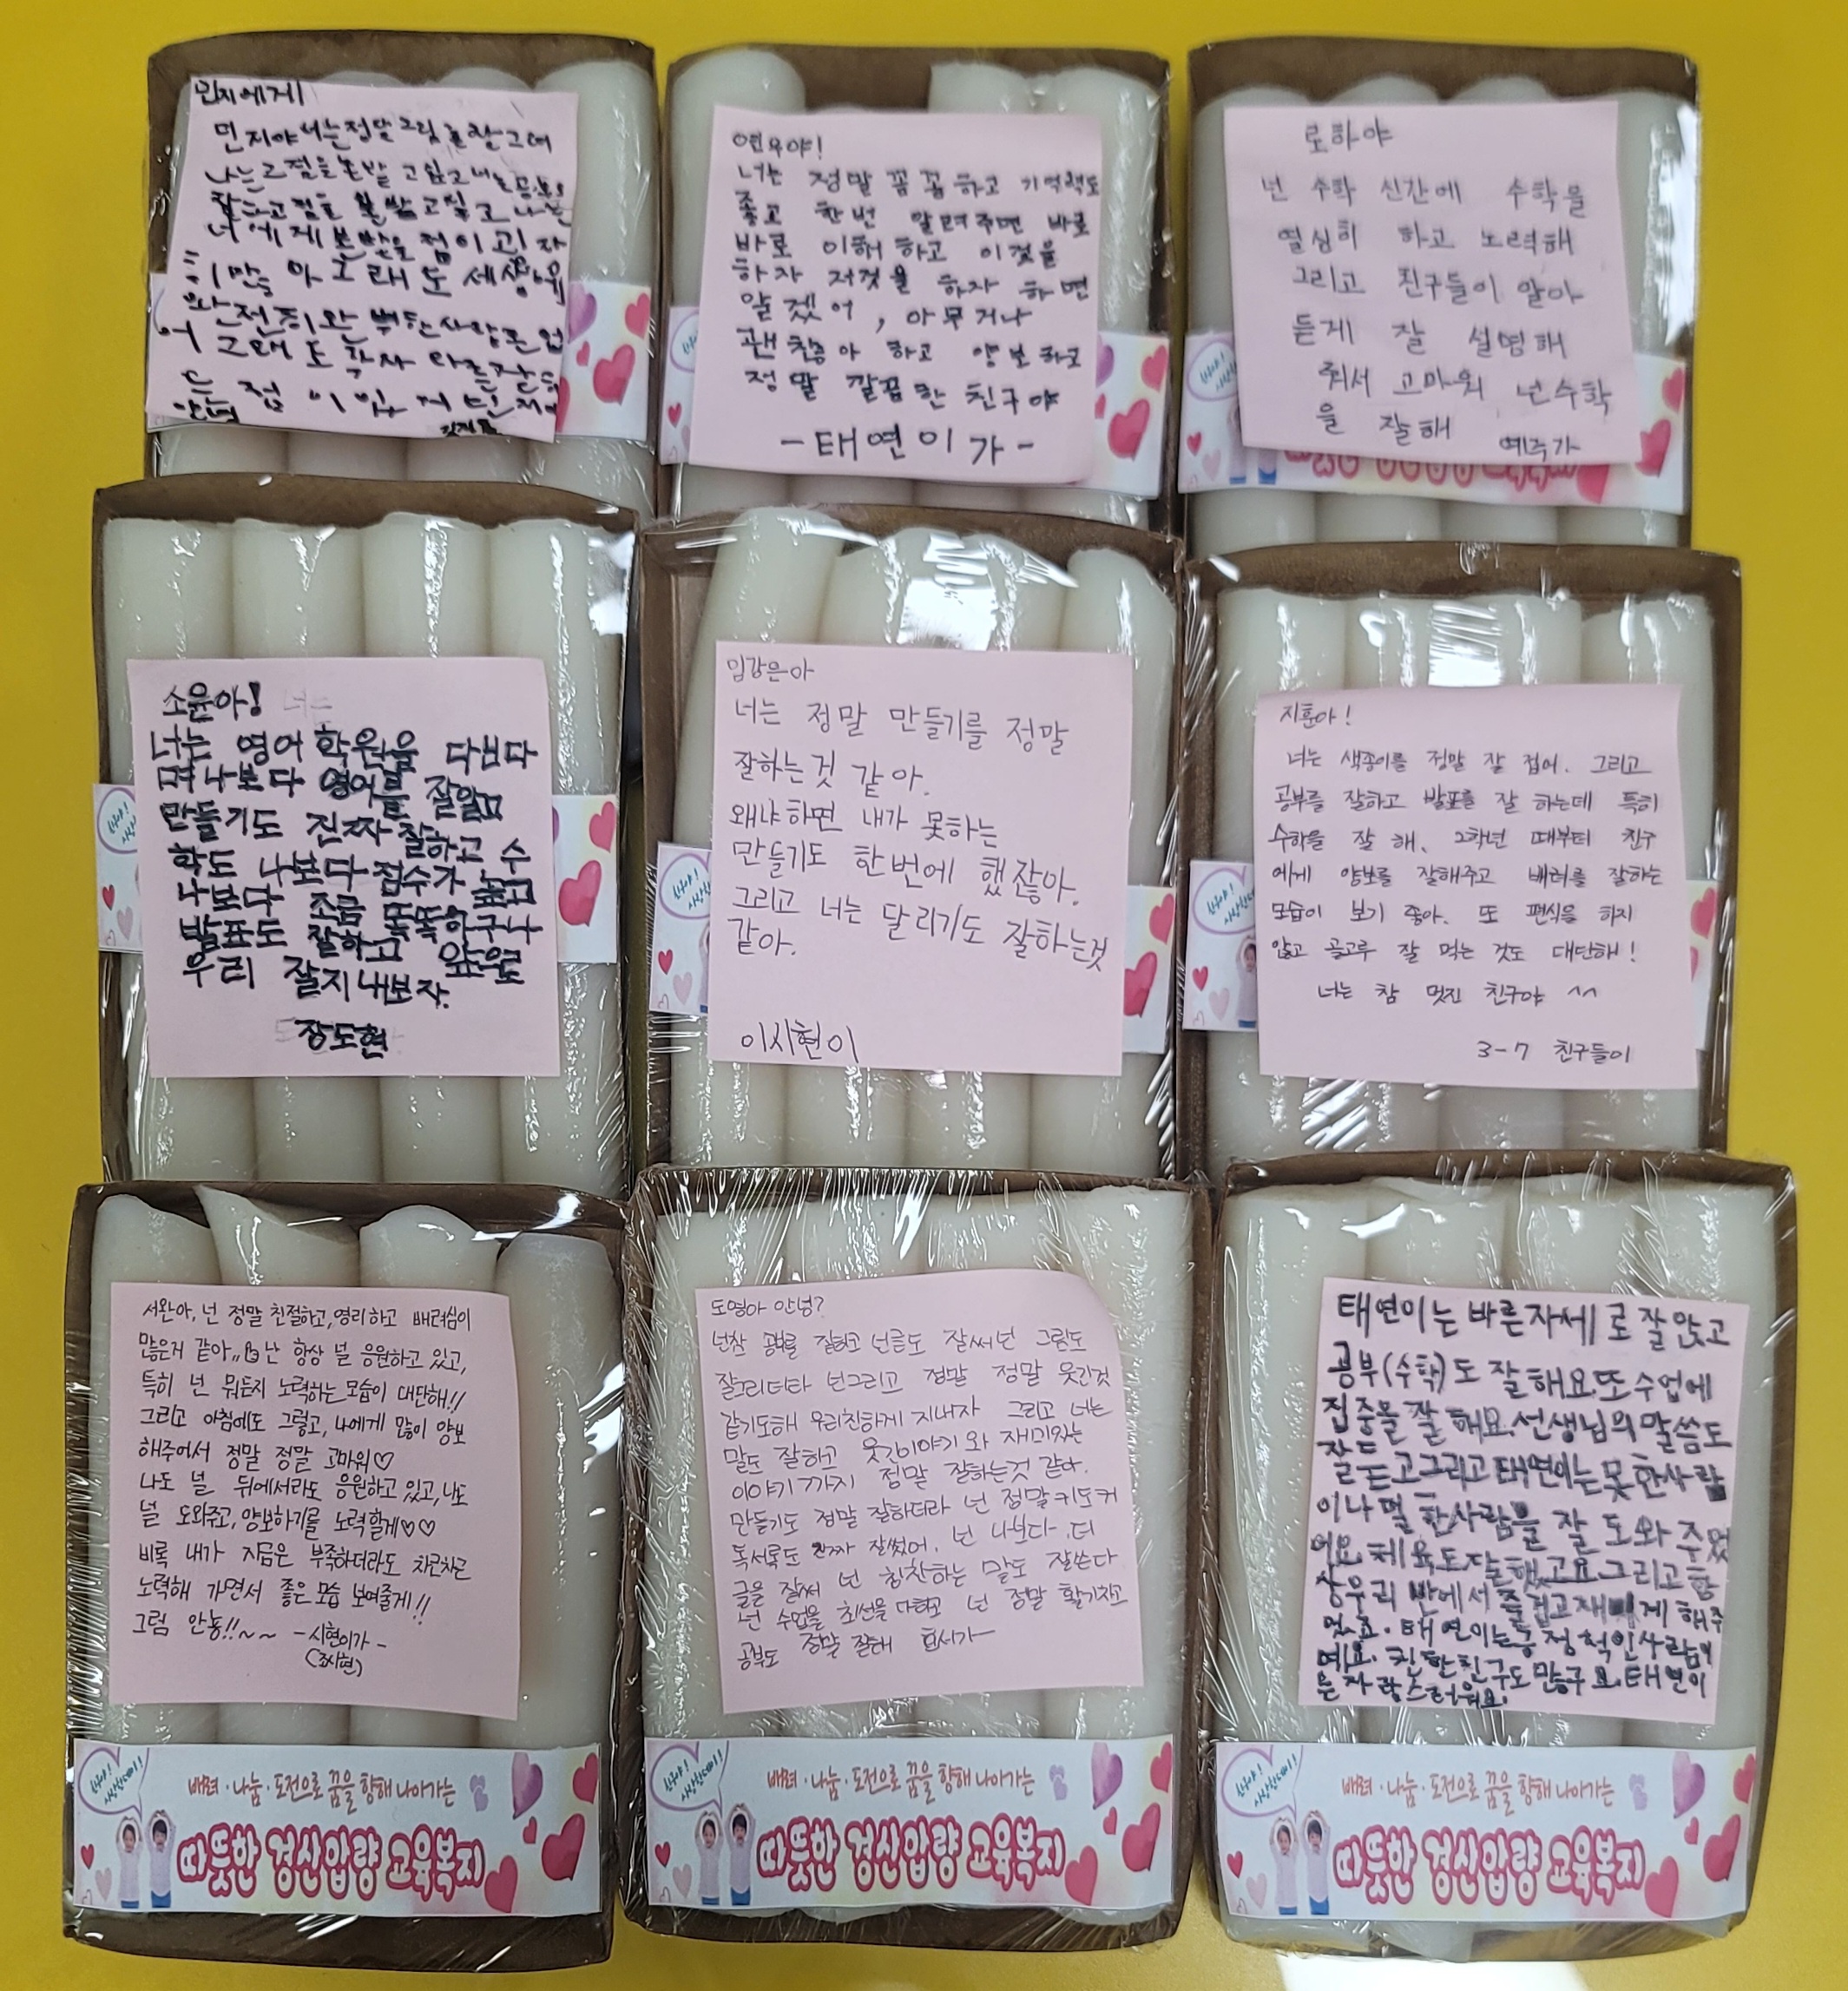 민지에게
민지야 너는 정말 그림을 잘 그려
나는 그 점을 본받고 싶고 너는 공부
잘하고 점을 본받고 싶고 나는
너에게 본받을 점이 굉장
히 많아 그래도 세상에
완전히 완벽한 사람은 없
어 그래도 각자 다른 잘하
는 점이 있
안녕
연우야!
너는 정말 꼼꼼하고 기억력도
좋고 한번 알려주면 바로
바로 이해하고 이것을
하자 저것을 하자 하면
알겠어, 아무거나
괜찮아 하고 양보하고
정말 깔끔한 친구야
-태연이가-
로하야
넌 수학 시간에 수학을
열심히 하고 노력해
그리고 친구들이 알아
듣게 잘 설명해
줘서 고마워 넌 수학
을 잘해 예주가
소윤아!
너는 영어 학원을 다닌다
며 나보다 영어를 잘알고
만들기도 진짜 잘하고 수
학도 나보다 점수가 높고
나보다 조금 똑똑하구나
발표도 잘하고 앞으로
우리 잘지내보자.
장도현
임강은아
너는 정말 만들기를 정말
잘하는것 같아.
왜냐하면 내가 못하는
만들기도 한번에 했잖아.
그리고 너는 달리기도 잘하는것
같아.
이시현이
지훈아!
너는 색종이를 정말 잘 접어. 그리고
공부를 잘하고 발표를 잘 하는데 특히
수학을 잘 해. 2학년 때부터 친구
에게 양보를 잘해주고 배려를 잘하는
모습이 보기 좋아. 또 편식을 하지
않고 골고루 잘 먹는 것도 대단해!
너는 참 멋진 친구야 ^^
3-7 친구들이
서완아, 넌 정말 친절하고, 영리하고 배려심이
많은거 같아,, 난 항상 널 응원하고 있고,
특히 넌 뭐든지 노력하는 모습이 대단해!!
그리고 아침에도 그렇고, 나에게 많이 양보
해주어서 정말 정말 고마워♡
나도 널 뒤에서라도 응원하고 있고, 나도
널 도와주고, 양보하기를 노력할게♡♡
비록 내가 지금은 부족하더라도 차근차근
노력해 가면서 좋은 모습 보여줄게!!
그럼 안뇽!!~~ -시현이가-
(조시현)
도영아 안녕?
넌참 공부를 잘하고 넌글도 잘써넌 그림도
잘그리더라 넌그리고 정말 정말 웃긴것
같기도해 우리친하게 지내자 그리고 너는
말도 잘하고 웃긴이야기와 재미있는
이야기까지 정말 잘하는것 같아.
만들기도 정말 잘하더라 넌 정말 키도커
독서록도 진짜 잘썼어. 넌 나보다 더
글을 잘써 넌 칭찬하는 말도 잘쓴다
넌 수업을 최선을 다하고 넌 정말 활기차고
공부도 정말 잘해
태연이는 바른자세로 잘 앉고
공부(수학)도 잘해요.또 수업에
집중을 잘 해요.선생님의 말씀도
잘 듣고그리고 태연이는 못 한사람
이나 덜 한사람을 잘 도와 주었
어요.체육도 잘했고요.그리고 항
상 우리 반에서 즐겁고 재미게 해주
었요.태연이는긍정적인사람이
예요.친한친구도 많구요.태연이
는 자랑스러워요.
너야! 사랑한데이!
배려·나눔·도전으로 꿈을 향해 나아가는
따뜻한 경산압량 교육복지
배려·나눔·도전으로 꿈을 향해 나아가는
따뜻한 경산압량 교육복지
배려·나눔·도전으로 꿈을 향해 나아가는
따뜻한 경산압량 교육복지